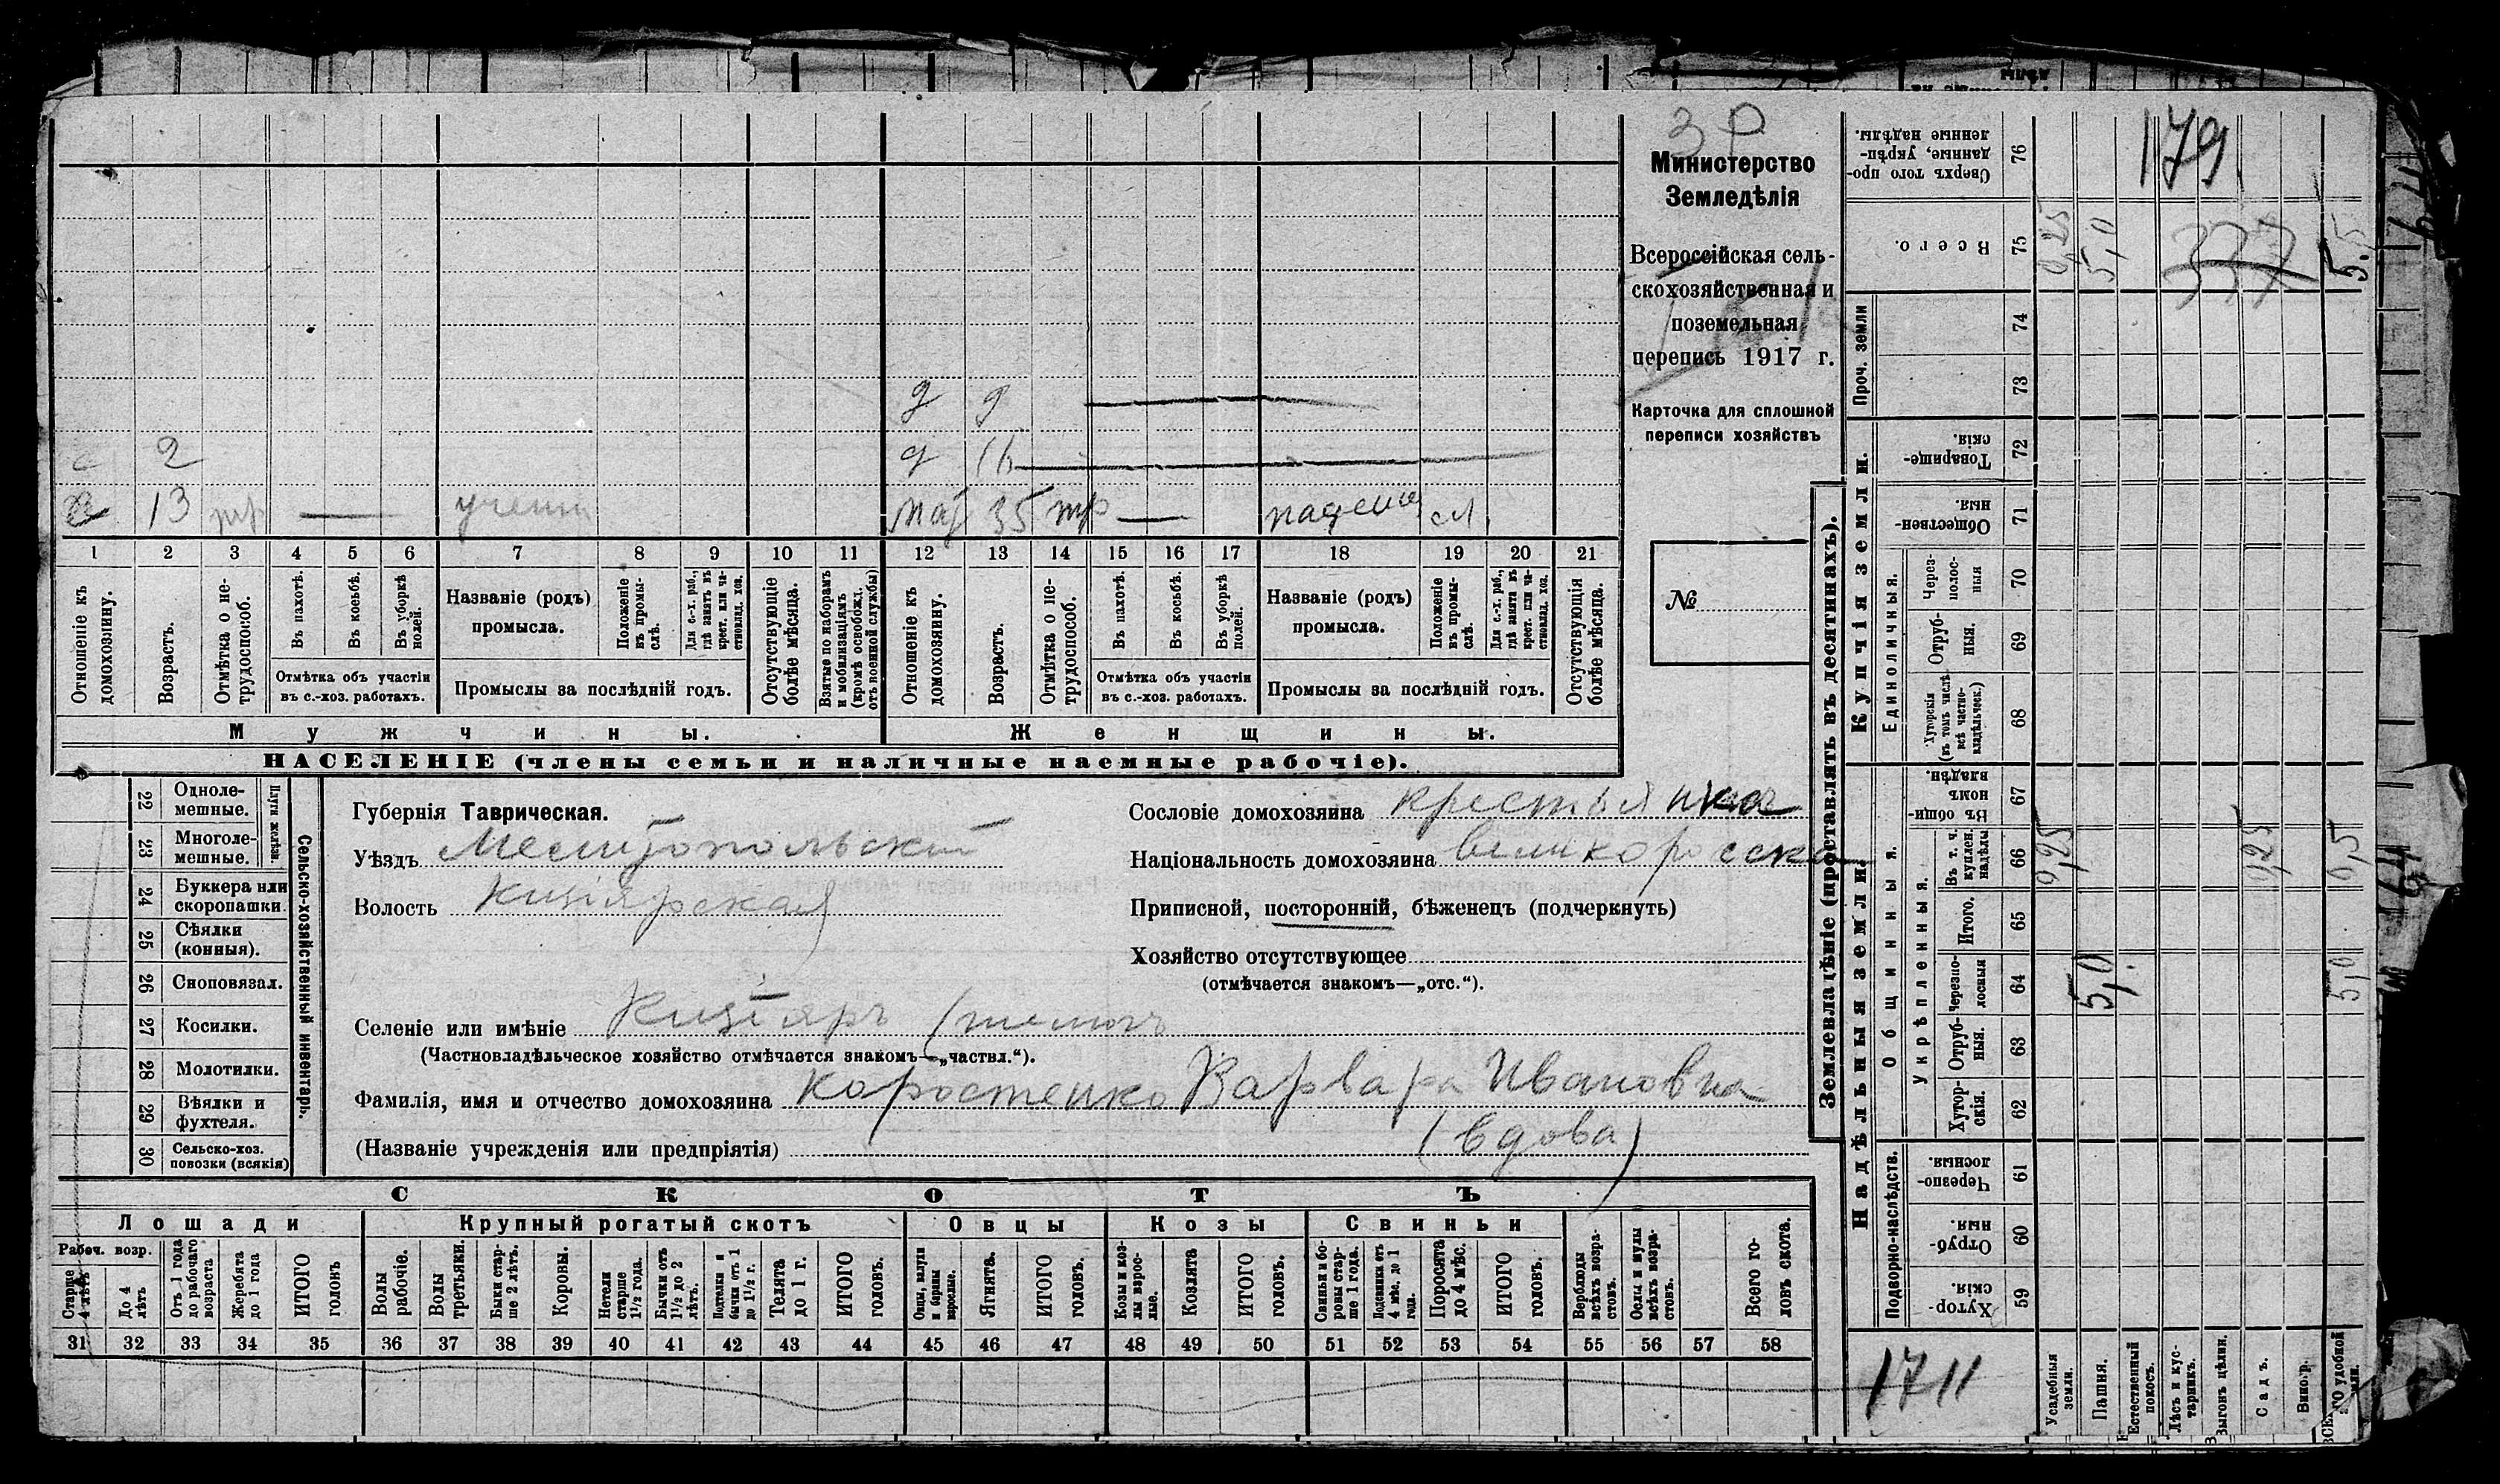 179
3 Р
Министерство
Земледѣлія
Всероссійская сель-
скохозяйственная и
поземельная
перепись 1917 г.
Карточка для сплошной
переписи хозяйствъ
№
д 9
с 2
д 16
13 учени
мат 35
1 2 3 4 5 6 7 8 9 10 11 12 13 14 15 16 17 18 19 20 21
Отношеніе къ домохозяину.
Возрастъ.
Отмѣтка о не-трудоспособ.
Въ пахотѣ.
Въ косьбѣ.
Въ уборкѣ полей.
Отмѣтка объ участіи
въ с.-хоз. работахъ.
Названіе (родъ)
промысла.
Положеніе въ промы-слѣ.
Для с.-х. раб., гдѣ занятъ въ крест. или ча-стновлад. хоз.
Промыслы за послѣдній годъ.
Отсутствующіе болѣе мѣсяца.
Взятые по наборамъ и мобилизаціямъ (кромѣ освобожд. отъ военной службы)
Отношеніе къ домохозяину.
Возрастъ.
Отмѣтка о не-трудоспособ.
Въ пахотѣ.
Въ косьбѣ.
Въ уборкѣ полей.
Отмѣтка объ участіи
въ с.-хоз. работахъ.
Названіе (родъ)
промысла.
Положеніе въ промы-слѣ.
Для с.-х. раб., гдѣ занята въ крест. или ча-стновлад. хоз.
Промыслы за послѣдній годъ.
Отсутствующія болѣе мѣсяца.
Мужчины. Женщины.
НАСЕЛЕНІЕ (члены семьи и наличные наемные рабочіе).
Сельско-хозяйственный инвентарь.
Плуги желѣзн.
22 Однолемешные.
23 Многоле-мешные.
24 Буккера или скоропашки.
25 Сѣялки (конныя).
26 Сноповязал.
27 Косилки.
28 Молотилки.
29 Вѣялки и фухтеля.
30 Сельско-хоз. повозки (всякія)
Губернія Таврическая.
Уѣздъ Мелитопольскій
Волость Кизіярская
Сословіе домохозяина крестьянка
Національность домохозяина великоросска
Приписной, посторонній, бѣженецъ (подчеркнуть)
Хозяйство отсутствующее
(отмѣчается знакомъ—„отс.“).
Селеніе или имѣніе Кизіяръ
(Частновладѣльческое хозяйство отмѣчается знакомъ—„частвл.“).
Фамилія, имя и отчество домохозяина Коростенко Варвара Ивановна
(Названіе учрежденія или предпріятія) (вдова)
СКОТЪ
Лошади Крупный рогатый скотъ Овцы Козы Свиньи
Рабоч. возр.
Старше 4 лѣтъ
До 4 лѣтъ
Отъ 1 года до рабочаго возраста
Жеребята до 1 года
ИТОГО головъ
Волы рабочіе.
Волы третьяки.
Быки стар-ше 2 лѣтъ.
Коровы.
Нетели старше 1½ года.
Бычки отъ 1½ до 2 лѣтъ.
Подтелки и бычки отъ 1 до 1½ г.
Телята до 1 г.
ИТОГО головъ.
Овцы, валухи и бараны взрослые.
Ягнята.
ИТОГО головъ.
Козы и коз-лы взрос-лые.
Козлята
ИТОГО головъ.
Свиньи и бо-ровы стар-ше 1 года.
Подсвинки отъ 4 мѣс. до 1 года.
Поросята до 4 мѣс.
ИТОГО головъ.
Верблюды всѣхъ возра-стовъ.
Ослы и мулы всѣхъ возра-стовъ.
Всего го-ловъ скота.
31 32 33 34 35 36 37 38 39 40 41 42 43 44 45 46 47 48 49 50 51 52 53 54 55 56 57 58
Землевладѣніе (проставлять въ десятинахъ).
Сверхъ того про-данные, укрѣп-ленные надѣлы. 76
Всего. 75 0,25 5,0 337 5,5
Проч. земли 74 73
Купчія земли.
Товарище-скія. 72
Обществен-ныя 71
Единоличныя.
Через-полос-ныя 70
Отруб-ныя. 69
Хуторскія (въ томъ числѣ всѣ частно-владѣльческ.) 68
Надѣльныя земли.
Общинныя.
Въ общи-номъ владѣн. 67
Укрѣпленныя.
Въ т. ч. куплен. надѣлы 66 0,25 0,25 0,5
Итого. 65
Черезпо-лосныя 64 5,0 5,0
Отруб-ныя. 63
Хутор-скія. 62
Подворно-наслѣдств.
Черезпо-лосныя. 61
Отруб-ныя. 60
Хутор-скія. 59
1711
Усадебныя земли.
Пашня.
Естественный покосъ.
Лѣсъ и кус-тарникъ.
Выгонъ цѣлин.
Садъ.
Виногр.